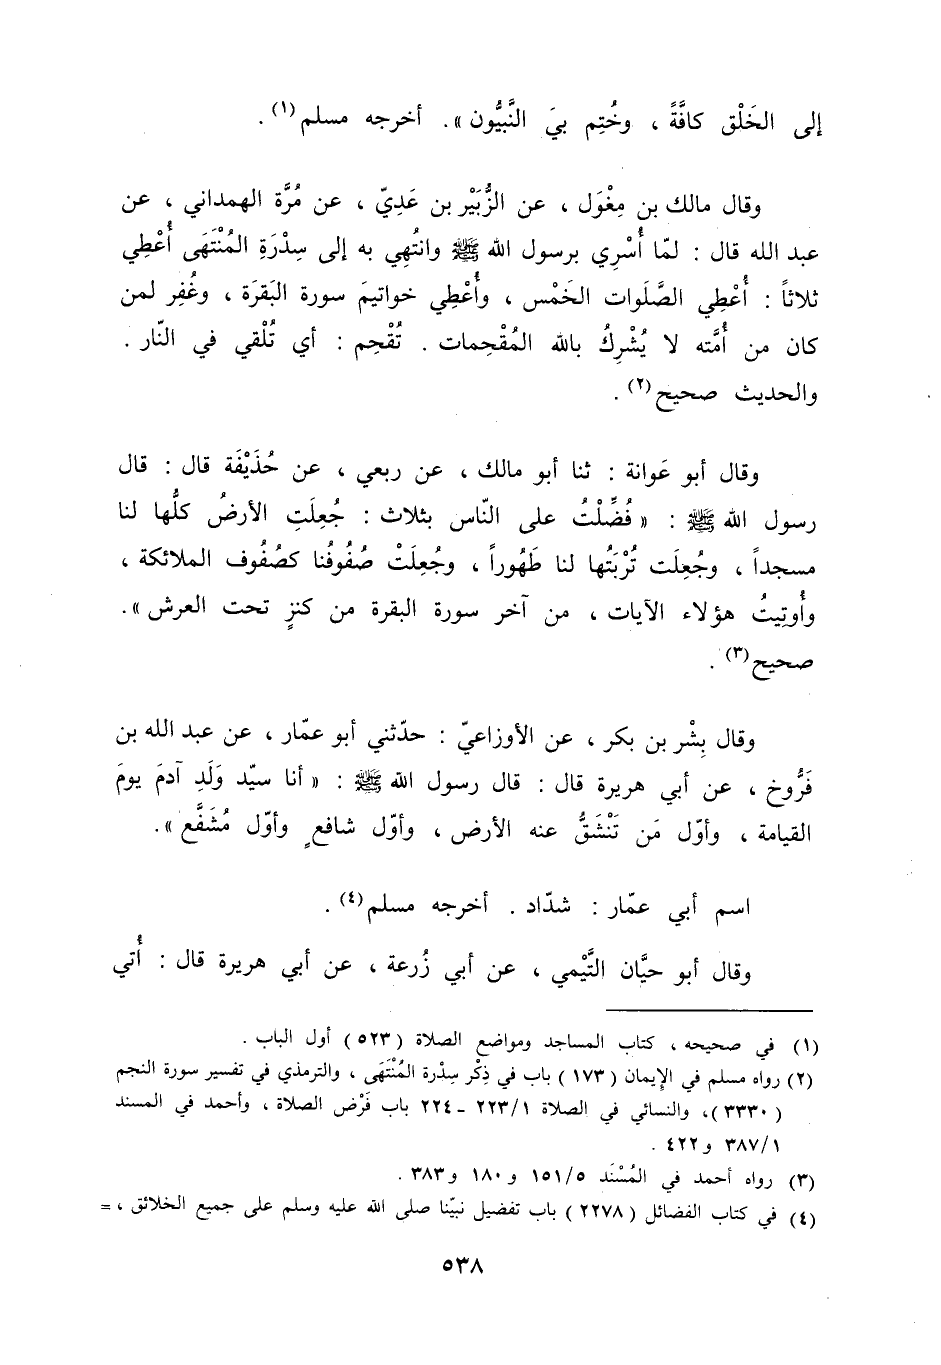 إلى الخَلْق كافَّةً ، وخُتِم بيَ النَّبيُّون » . أخرجه مسلم(١) .
وقال مالك بن مِغْوَل ، عن الزُّبَيْر بن عَدِيّ ، عن مُرَّة الهمداني ، عن
عبد الله قال : لمّا أُسْرِي برسول الله ﷺ وانتُهِي به إلى سِدْرَةِ المُنْتَهَى أُعْطِي
ثلاثاً : أُعْطِي الصَّلَوات الخَمْس ، وأُعْطِي خواتيمَ سورة البَقرَة ، وغُفِر لمن
كان من أُمَّته لا يُشْرِكُ بالله المُقْحِمات . تُقْحِم : أي تُلْقي في النّار .
والحديث صحيح(٢) .
وقال أبو عَوانة : ثنا أبو مالك ، عن ربعي ، عن حُذَيْفَة قال : قال
رسول الله ﷺ : « فُضِّلْتُ على النّاس بثلاث : جُعِلَتِ الأرضُ كلُّها لنا
مسجداً ، وجُعِلَت تُرْبَتُها لنا طَهُوراً ، وجُعِلَتْ صُفُوفُنا كصُفُوف الملائكة ،
وأُوتِيتُ هؤلاء الآيات ، من آخر سورة البقرة من كنزٍ تحت العرش » .
صحيح(٣) .
وقال بِشْر بن بكر ، عن الأوزاعيّ : حدّثني أبو عمّار ، عن عبد الله بن
فَرُّوخ ، عن أبي هريرة قال : قال رسول الله ﷺ : « أنا سيّد وَلَدِ آدمَ يومَ
القيامة ، وأوّل مَن تَنْشَقُّ عنه الأرض ، وأوّل شافعٍ وأوّل مُشَفَّع » .
اسم أبي عمّار : شدّاد . أخرجه مسلم(٤) .
وقال أبو حيَّان التَّيْمي ، عن أبي زُرعة ، عن أبي هريرة قال : أُتي
(١) في صحيحه ، كتاب المساجد ومواضع الصلاة (٥٢٣) أول الباب .
(٢) رواه مسلم في الإيمان (١٧٣) باب في ذِكْر سِدْرة المُنْتَهَى ، والترمذي في تفسير سورة النجم
(٣٣٣٠) ، والنسائي في الصلاة ٢٢٣/١ - ٢٢٤ باب فَرْض الصلاة ، وأحمد في المسند
٣٨٧/١ و٤٢٢ .
(٣) رواه أحمد في المُسْنَد ١٥١/٥ و ١٨٠ و٣٨٣ .
(٤) في كتاب الفضائل (٢٢٧٨) باب تفضيل نبيّنا صلى الله عليه وسلم على جميع الخلائق ، =
٥٣٨